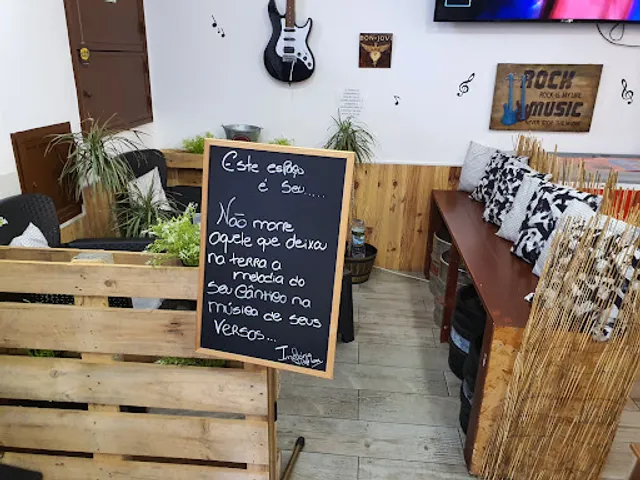 BON JOVI
ROCK
ROCK IS MY LIFE
MUSIC
Este espaço
é seu.....
Não morre
aquele que deixou
na terra a
melodia do
seu Cântico na
música de seus
VERSOS...